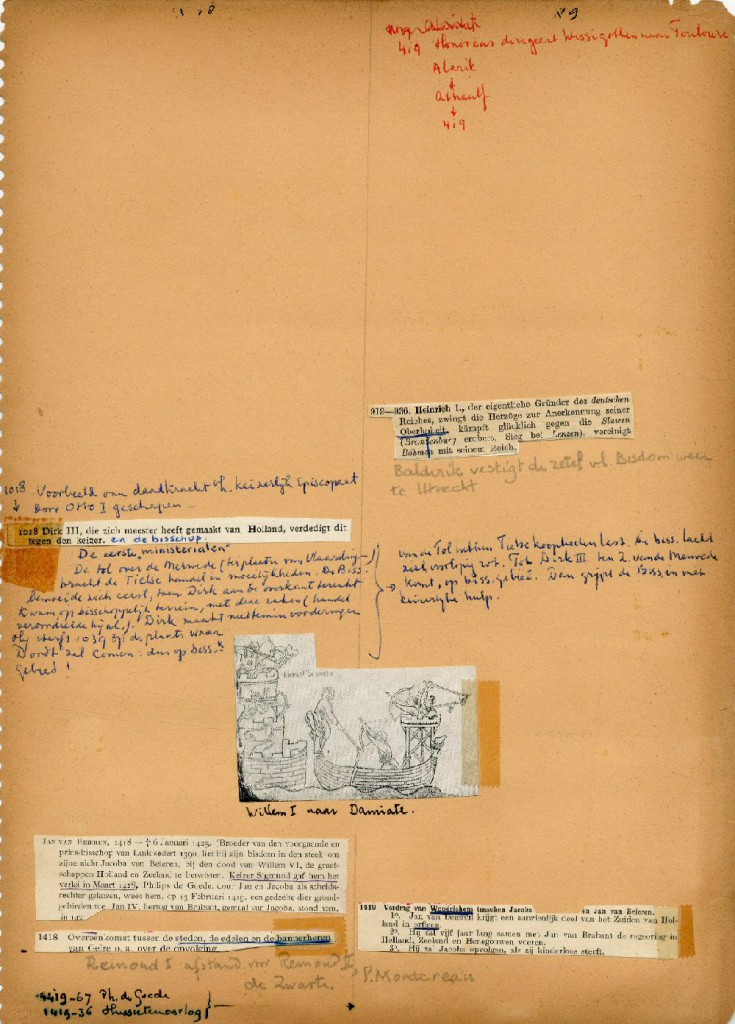 18
19
419 Honorius dirigeert Wissigothen naar Toulouse
Alarik
↓
Athaulf
↓
419
919—936. Heinrich I., der eigentliche Gründer des deutschen
Reiches, zwingt die Herzöge zur Anerkennung seiner
Oberhoheit, kämpft glücklich gegen die Slawen
(Brandenburg erobert. Sieg bei Lenzen), vereinigt
Böhmen mit seinem Reich.
Balderik vestigt de zetel v.h. Bisdom weer
te Utrecht
1018 Voorbeeld van daadkracht v.h. keizerlijk Episcopaat
↓ door Otto I geschapen
1018 Dirk III, die zich meester heeft gemaakt van Holland, verdedigt dit
tegen den keizer. en de bisschop.
De eerste "ministerialen"
De tol over de Merwede (ter plaatse van Vlaardingen)
bracht de Tielse handel in moeilijkheden. De Biss.
bemoeide zich eerst, toen Dirk aan de overkant terecht
kwam, op bisschoppelijk terrein, met deze zaken (handel
Dirk maakt niettemin vorderingen
Hij sterft 1039 op de plaats waar
Dordt zal komen: dus op biss.
gebied!
van de Tol hadden Tielse kooplieden last. De biss. lacht
zich voorlopig rot. Tot Dirk III ten Z. van de Merwede
→ komt, op biss. gebied. Dan grijpt de Biss. in met
keizerlijke hulp.
Willem I naar Damiate.
JAN VAN BEIEREN, 1418 — † 6 Januari 1425. Broeder van den voorgaande en
prins-bisschop van Luik sedert 1390, liet hij zijn bisdom in den steek om
zijne nicht Jacoba van Beieren, bij den dood van Willem VI, de graaf-
schappen Holland en Zeeland te betwisten. Keizer Sigmund gaf hem het
verlei in Maart 1418. Philips de Goede, door Jan en Jacoba als scheids-
rechter gekozen, wees hem, op 13 Februari 1419, een gedeelte dier grond-
gebieden toe. Jan IV, hertog van Brabant, gemaal van Jacoba, stond hem,
in 142
1418 Overeenkomst tussen de steden, de edelen en de bannerheren
van Gelre o. a. over de opvolging
Reinoud I afstand voor Reinoud II,
de Zwarte.
1419 Verdrag van Woudrichem tusschen Jacoba en Jan van Beieren.
1º. Jan van Beieren krijgt een aanzienlijk deel van het Zuiden van Hol-
land in erfleen.
2º. Hij zal vijf jaar lang samen met Jan van Brabant de regeering in
Holland, Zeeland en Henegouwen voeren.
3º. Hij zal Jacoba opvolgen, als zij kinderloos sterft.
P. Montereau
1419-67 Ph. de Goede
1419-36 Hussietenoorlog